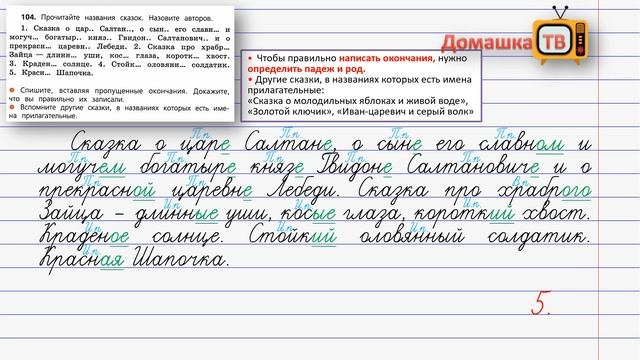 104. Прочитайте названия сказок. Назовите авторов.
1. Сказка о цар.. Салтан.., о сын.. его славн... и
могуч... богатыр.. княз.. Гвидон.. Салтанович.. и о
прекрасн... царевн.. Лебеди. 2. Сказка про храбр...
Зайца — длинн... уши, кос... глаза, коротк... хвост.
3. Краден... солнце. 4. Стойк... оловянн... солдатик.
5. Красн... Шапочка.
Спишите, вставляя пропущенные окончания. Докажите,
что вы правильно их записали.
Вспомните другие сказки, в названиях которых есть име-
на прилагательные.
Домашка ТВ
• Чтобы правильно написать окончания, нужно
определить падеж и род.
• Другие сказки, в названиях которых есть имена
прилагательные:
«Сказка о молодильных яблоках и живой воде»,
«Золотой ключик», «Иван-царевич и серый волк»
П.п. П.п. П.п. П.п.
Сказка о царе Салтане, о сыне его славном и
П.п. П.п. П.п. П.п. П.п.
могучем богатыре князе Гвидоне Салтановиче и о
П.п. П.п. В.п.
прекрасной царевне Лебеди. Сказка про храброго
И.п. И.п. И.п.
Зайца – длинные уши, косые глаза, короткий хвост.
И.п. И.п. И.п.
Краденое солнце. Стойкий оловянный солдатик.
И.п.
Красная Шапочка.
5.